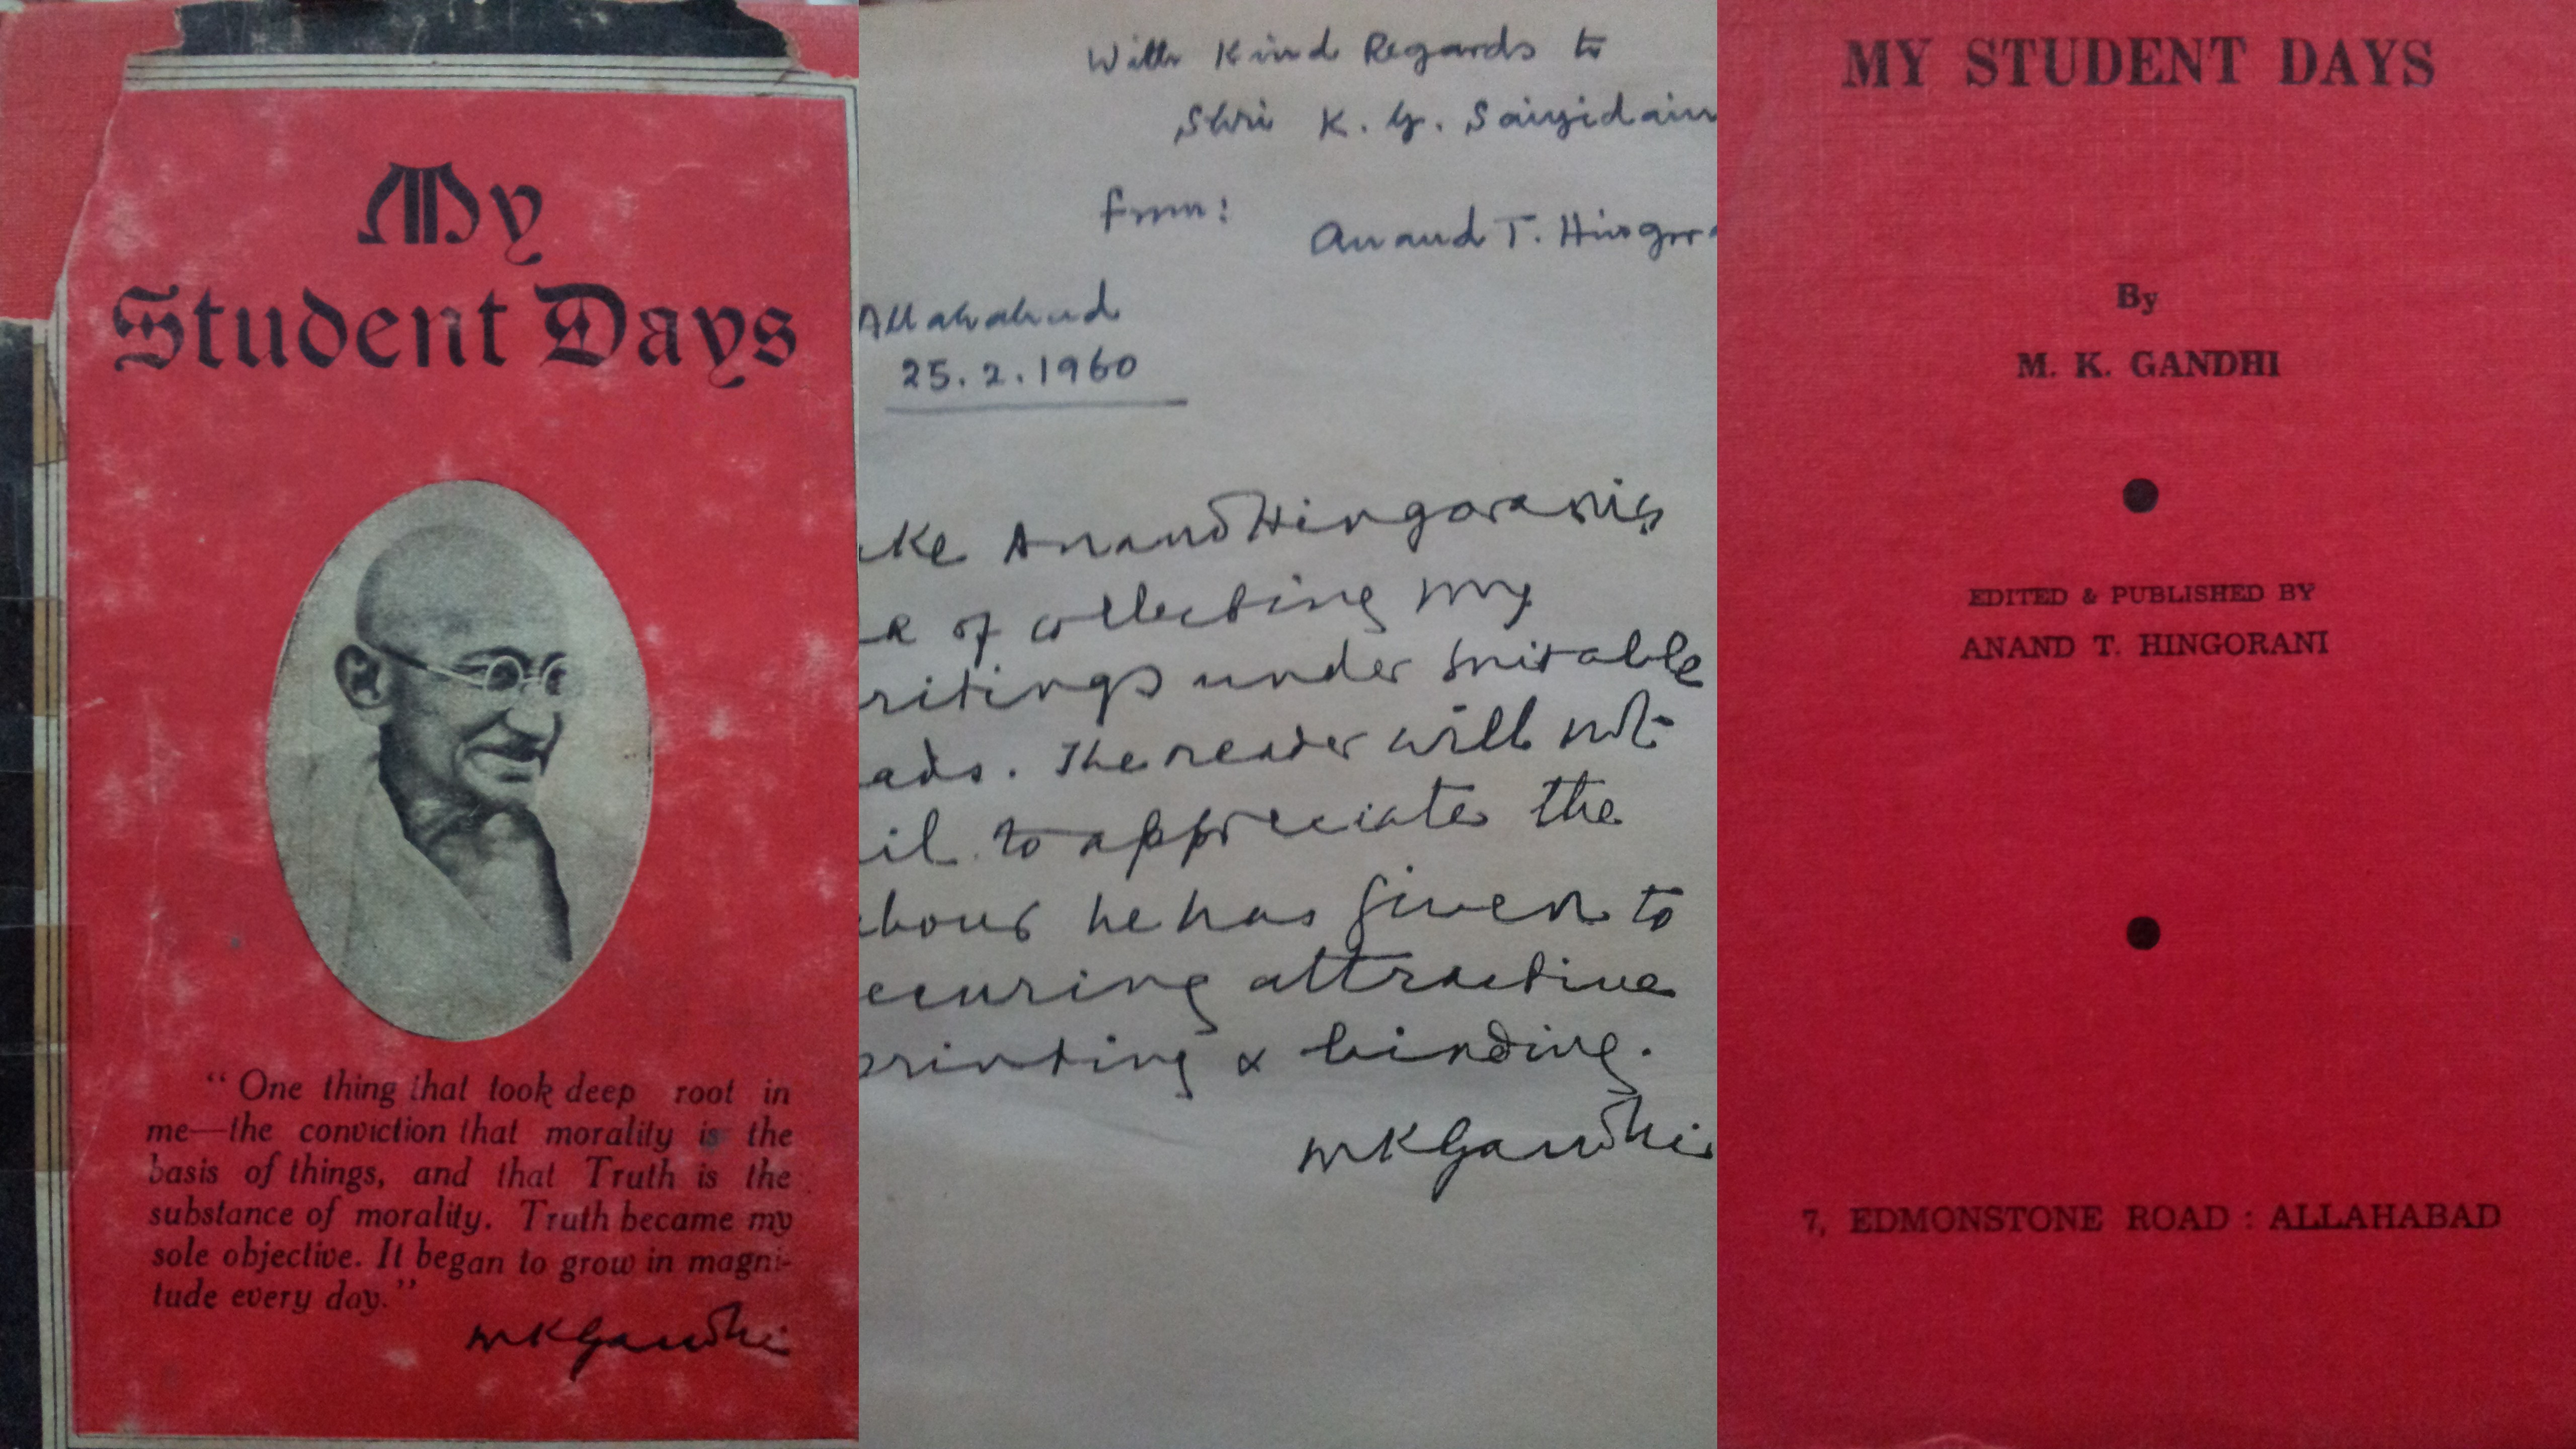 My
Student Days
“One thing that took deep root in
me—the conviction that morality is the
basis of things, and that Truth is the
substance of morality. Truth became my
sole objective. It began to grow in magni-
tude every day.”
MKGandhi
With Kind Regards to
Shri K. G. Saiyidain
from:
Anand T. Hingor
Allahabad
25.2.1960
ke Anand Hingorani's
of collecting my
ritings under suitable
ads. The reader will not
il to appreciate the
bour he has given to
ecuring attractive
printing & binding.
MKGandhi
MY STUDENT DAYS
By
M. K. GANDHI
EDITED & PUBLISHED BY
ANAND T. HINGORANI
7, EDMONSTONE ROAD : ALLAHABAD